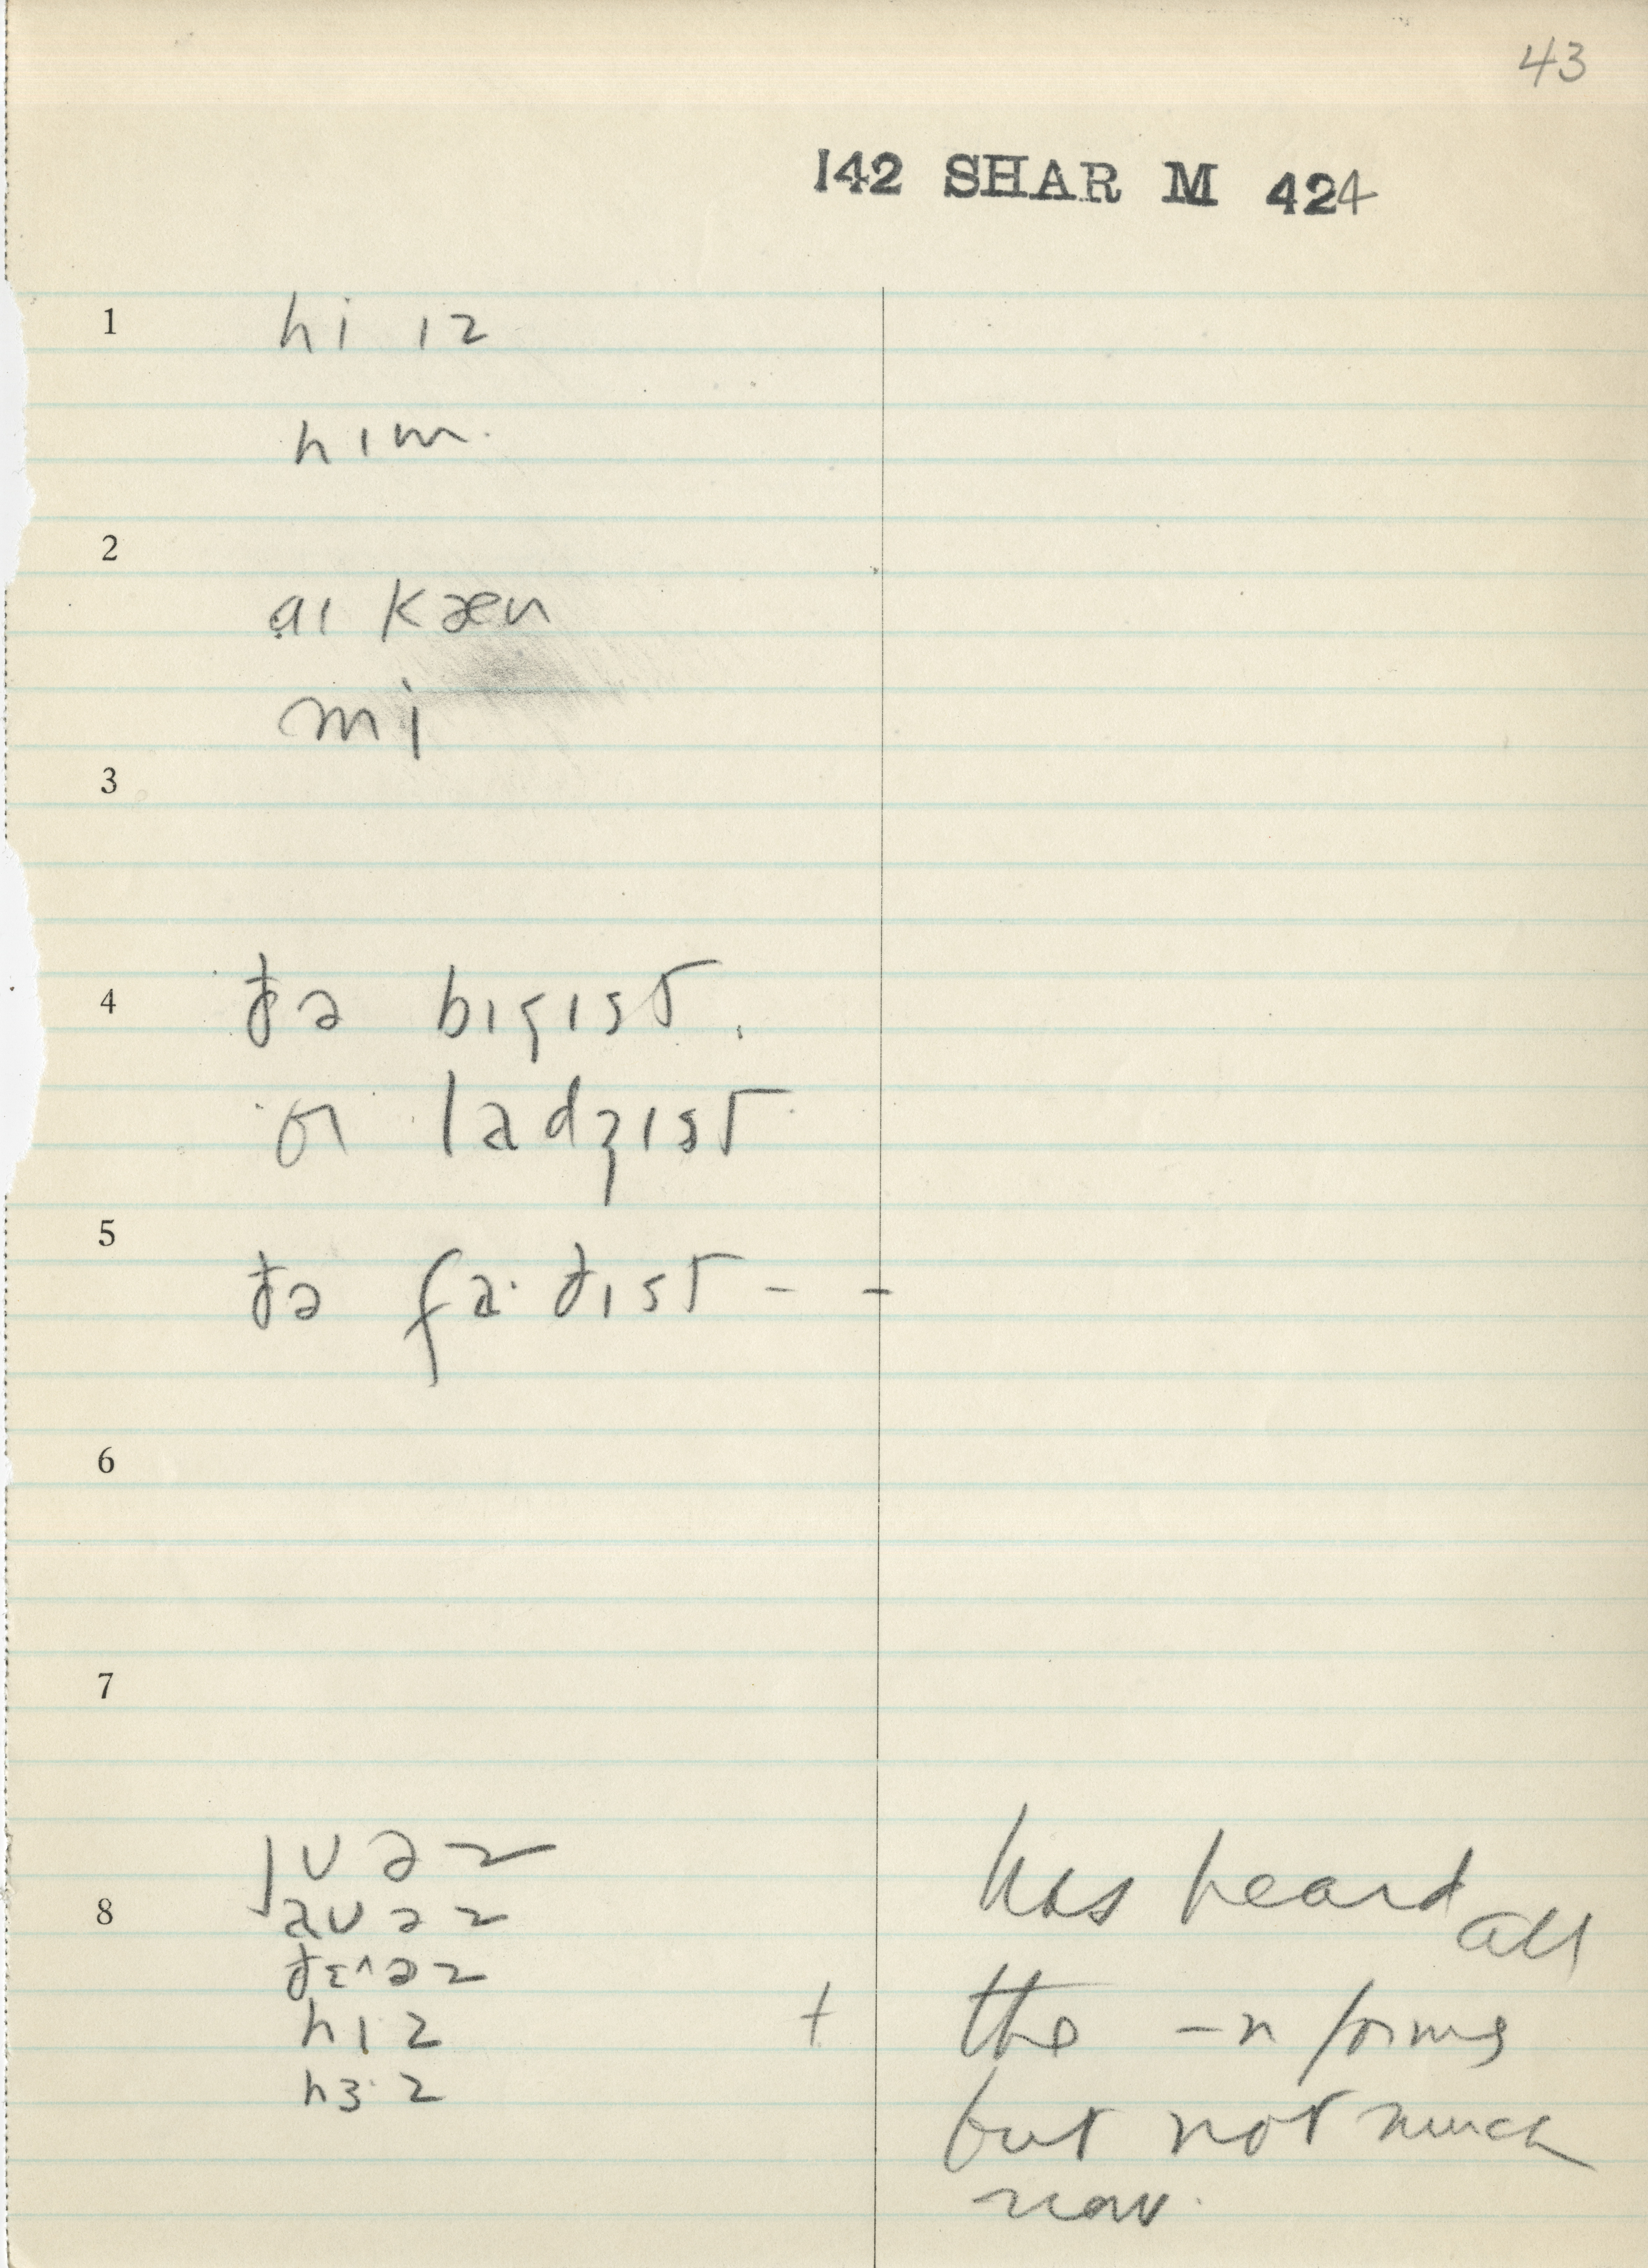 43
142 SHAR M 424
1 hi ɪz
hɪm.
2
aɪ kæn
mi
3
4 ðə bɪgɪst.
ɒɪ ladʒɪst
5
ðə fa·ðɪst - -
6
7
jʊəz
8 aʊəz
ðɛ^əz
hɪz
hɜ·z
has heard all
+ the -n forms
but not much
now.